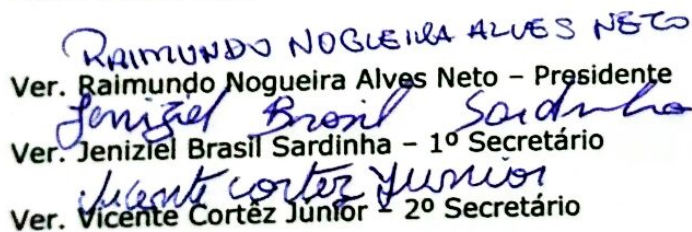 RAIMUNDO NOGUEIRA ALVES NETO
Ver. Raimundo Nogueira Alves Neto – Presidente
Jeniziel Brasil Sardinha
Ver. Jeniziel Brasil Sardinha – 1º Secretário
Vicente Cortez Junior
Ver. Vicente Cortêz Júnior – 2º Secretário